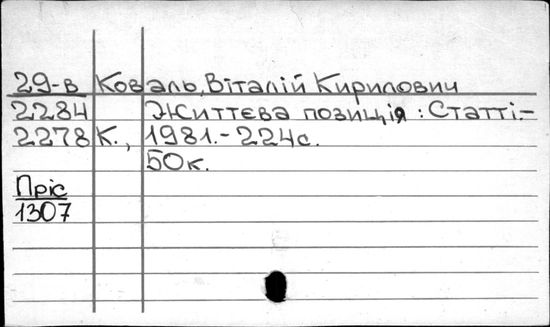 29-в Коваль, Віталій Кирилович
2284 Життєва позиція : Статті.-
2278 К., 1981.-224с.
50к.
Пріс
1307